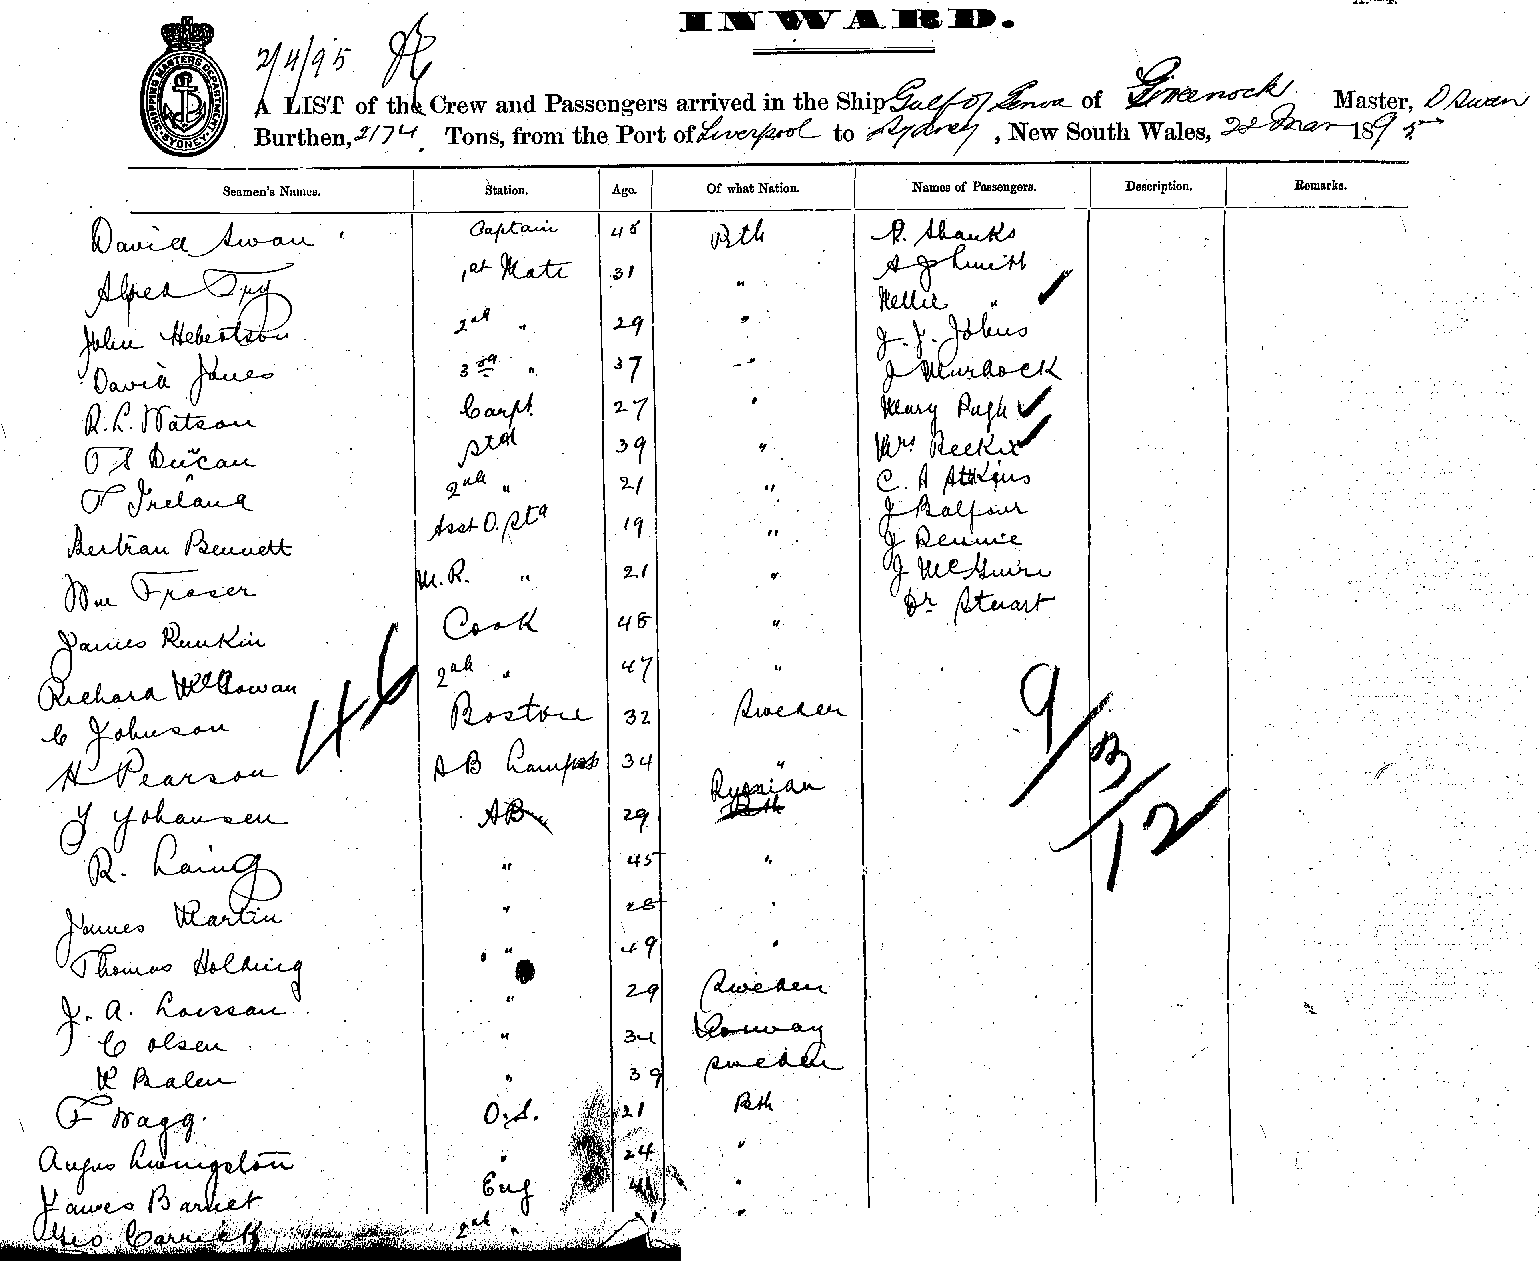 INWARD.
2/4/95
A LIST of the Crew and Passengers arrived in the Ship Gulf of Genoa of Greenock Master, D Swan
Burthen, 2174 Tons, from the Port of Liverpool to Sydney, New South Wales, 22 Mar 1895
SHIPPING MASTERS DEPARTMENT SYDNEY
Seamen's Names. Station. Age. Of what Nation. Names of Passengers. Description. Remarks.
David Swan Captain 48 Bth R. Shanks
Alfred Fry 1st Mate 31 " A J Smith
Nellie "
John Hebertson 2nd " 29 " J. J. Johns
David Jones 3rd " 37 " J Murdock
R. L. Watson Carpt. 27 " Mary Pugh
T S Duncan Std 39 " Mrs
T Ireland 2nd " 21 " C. A Attkins
J Balfour
Bertran Bennett Asst O. Std 19 " J Rennie
Wm Fraser M. R. " 21 " J McGuire
Dr Stuart
James Rankin Cook 48 "
Richard McGowan 2nd " 47 "
C Johnson Boston 32 Sweden
H Pearson AB Lamps 34 "
Y Yohansen AB 29 Russian
R. Laing " 45 "
James Martin " 28 "
Thomas Holding " 49 "
J. A. Larsson " 29 Sweden
C Olsen " 34 Norway
K Balen " 39 Sweden
F Wagg. O.S. 21 Bth
Angus Livingston " 24 "
James Barnet Eng 41 "
Geo Carrick 2nd " "
46
9/3/12